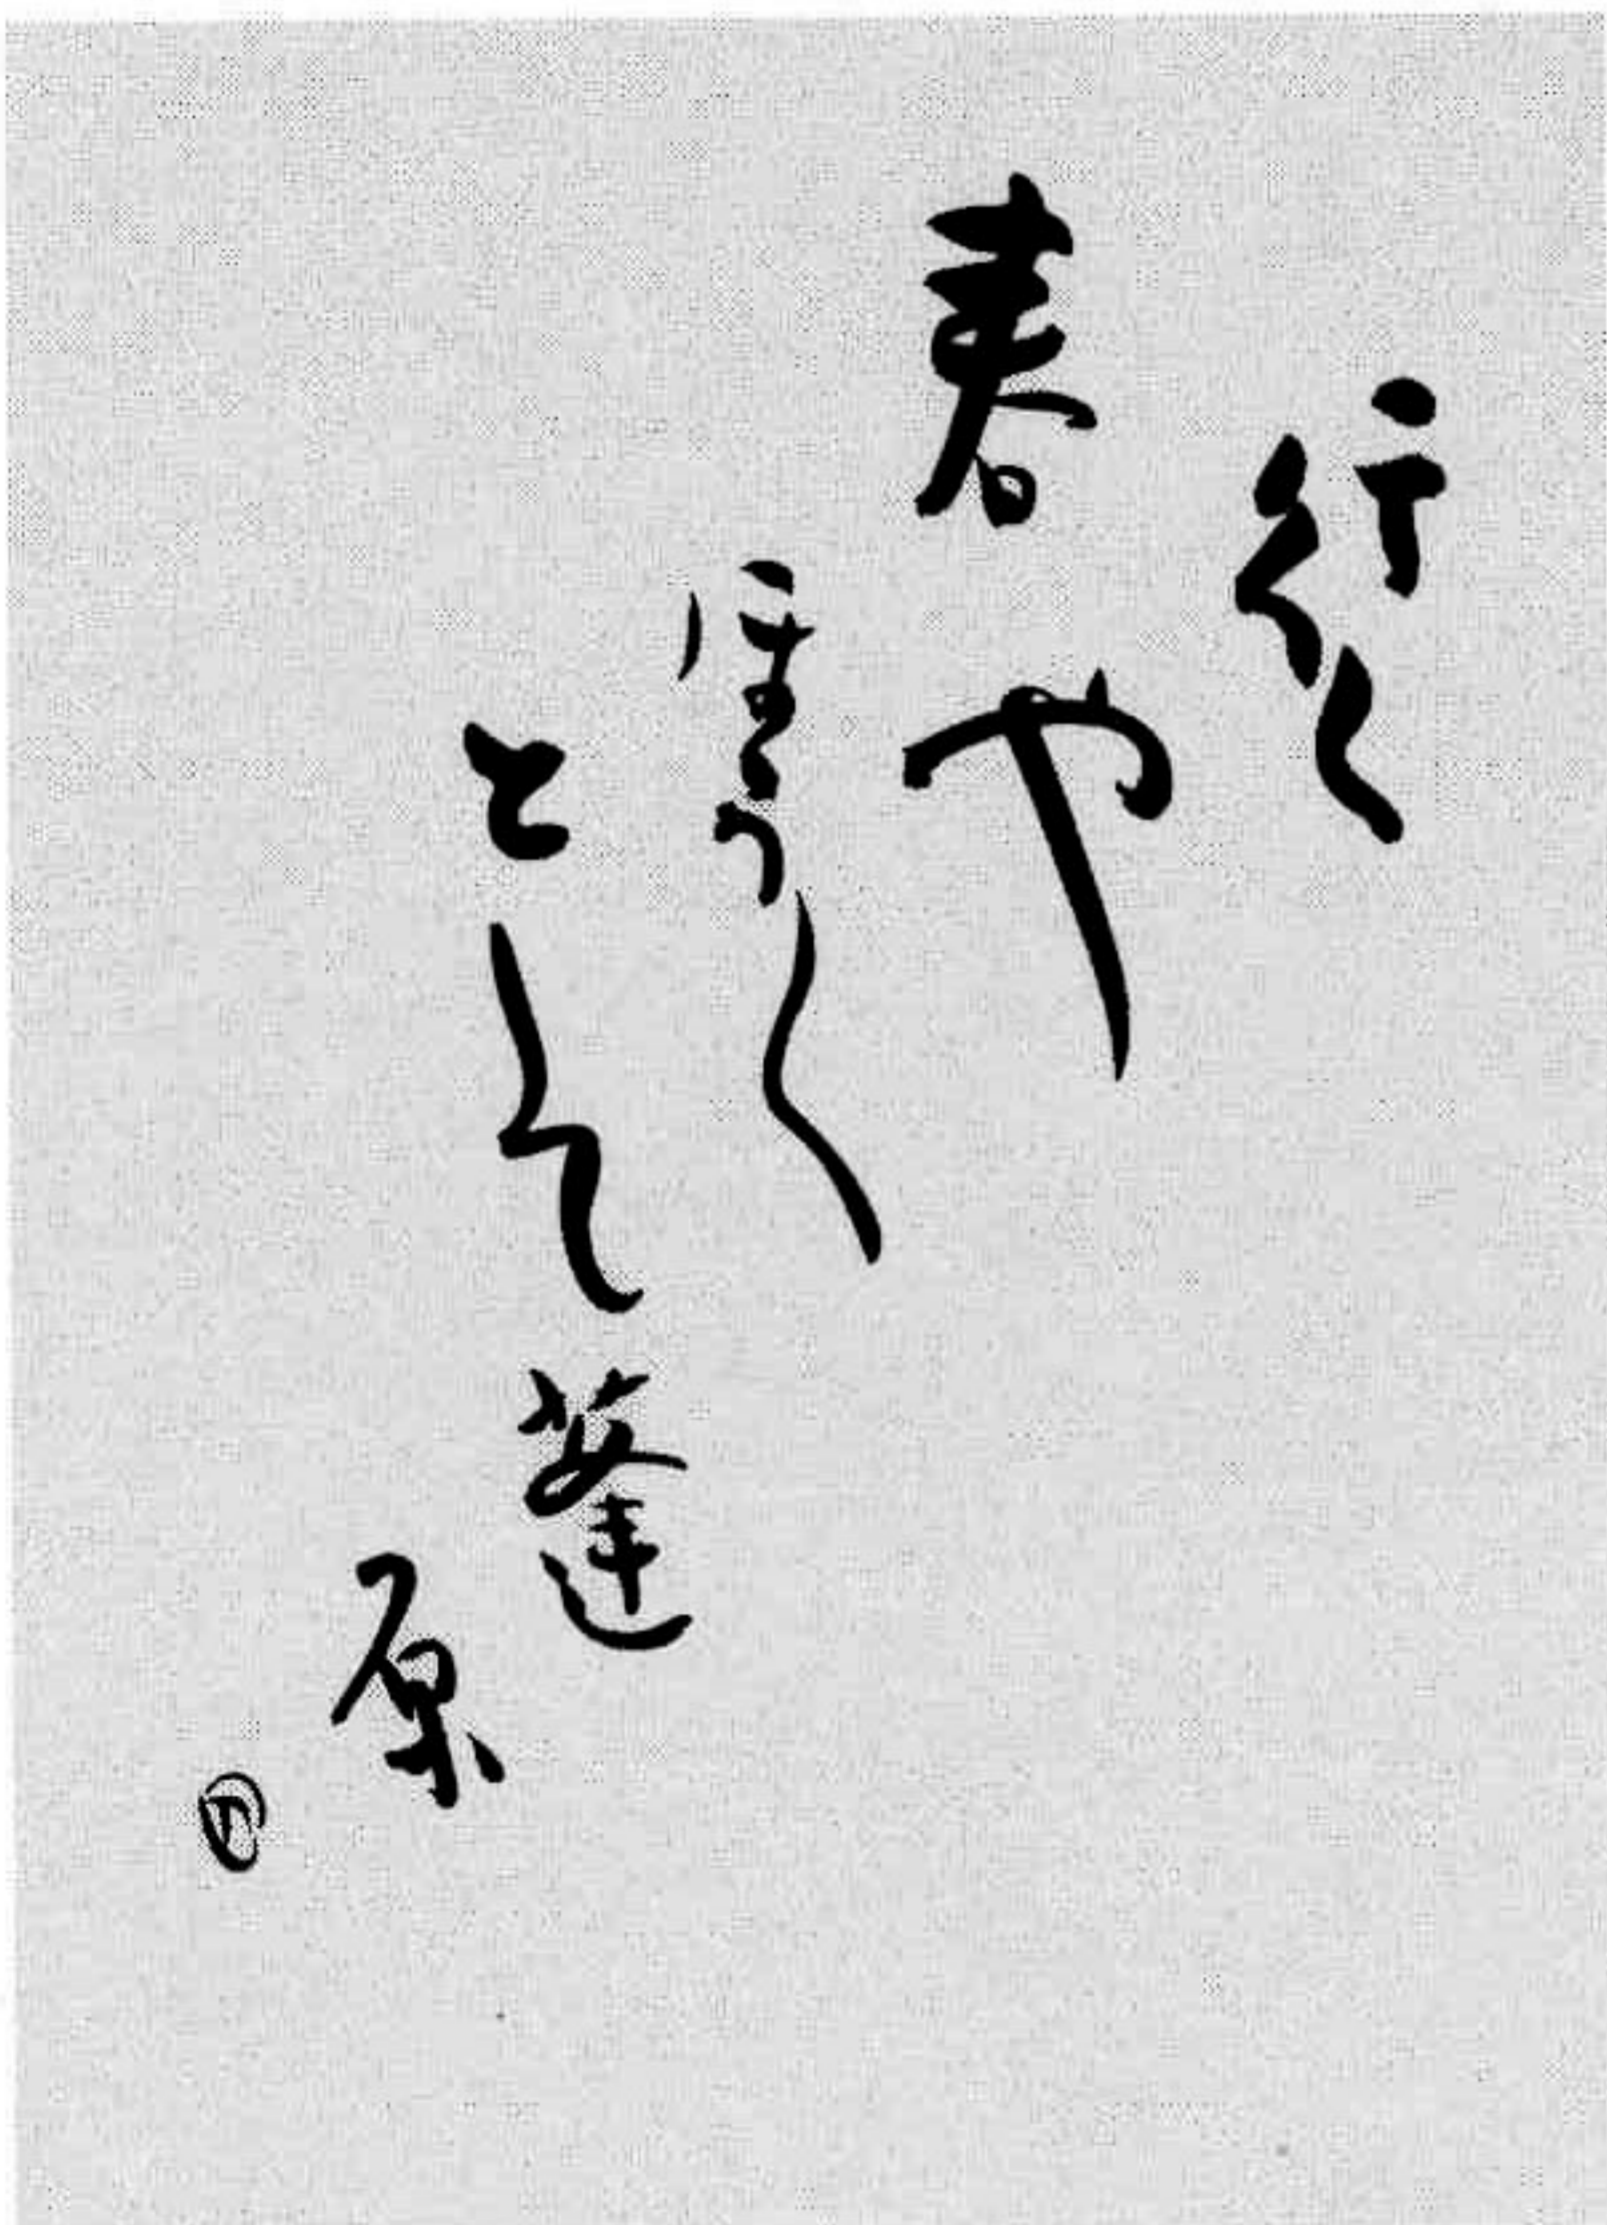 行く
春や
ほう〱
として蓬
原